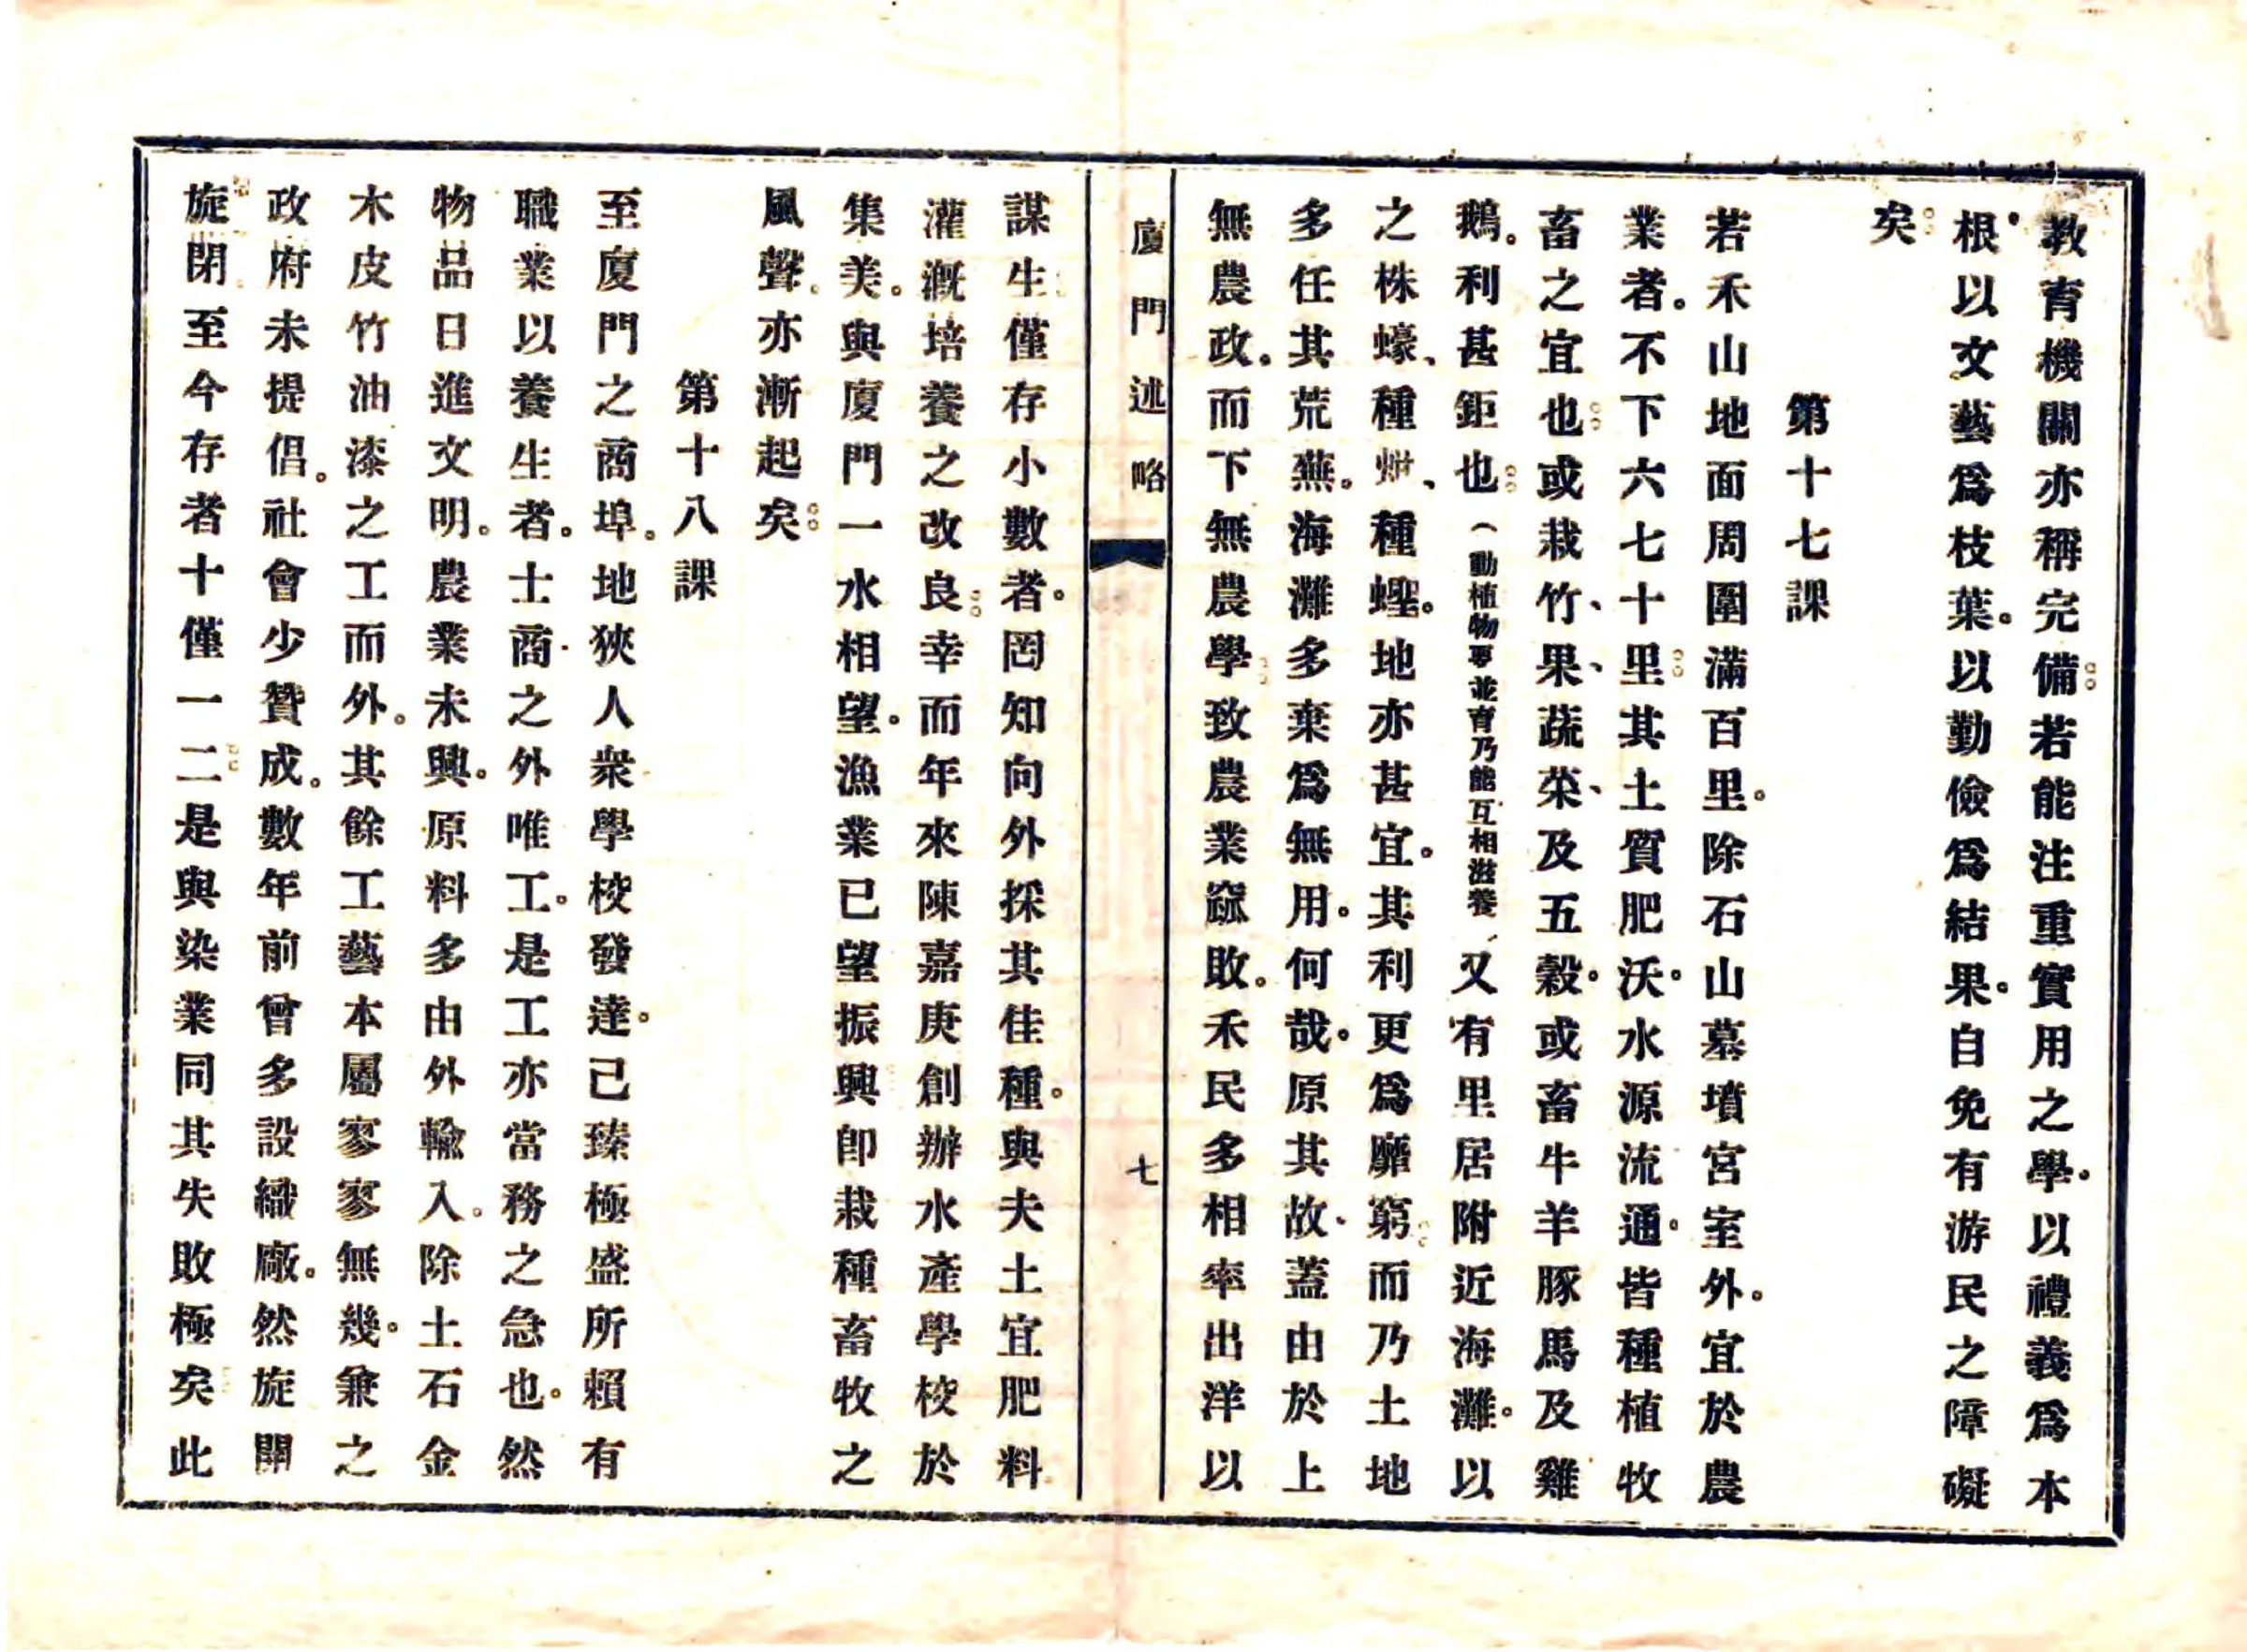 教育機關亦稱完備。若能注重實用之學。以禮義爲本
根。以文藝爲枝葉。以勤儉爲結果。自免有游民之障礙
矣。
第十七課
若禾山地面周圍滿百里。除石山墓墳宮室外。宜於農
業者。不下六七十里。其土質肥沃。水源流通。皆種植牧
畜之宜也。或栽竹、果、蔬、菜、及五穀。或畜牛羊豚馬及雞
鵝。利甚鉅也。（動植物要並育乃能互相滋養）又有里居附近海灘。以
之株蠔、種蚶、種蟶。地亦甚宜。其利更爲靡窮。而乃土地
多任其荒蕪。海灘多棄爲無用。何哉。原其故、蓋由於上
無農政。而下無農學。致農業窳敗。禾民多相率出洋以
廈門述略 七
謀生。僅存小數者。罔知向外採其佳種。與夫土宜肥料
灌漑培養之改良。幸而年來陳嘉庚創辦水產學校於
集美。與廈門一水相望。漁業已望振興。卽栽種畜牧之
風聲。亦漸起矣。
第十八課
至廈門之商埠。地狹人衆。學校發達。已臻極盛。所賴有
職業以養生者。士商之外唯工。是工亦當務之急也。然
物品日進文明。農業未興。原料多由外輸入。除土石金
木皮竹油漆之工而外。其餘工藝本屬寥寥無幾。兼之
政府未提倡。社會少贊成。數年前曾多設織廠。然旋開
旋閉。至今存者十僅一二。是與染業同其失敗極矣。此